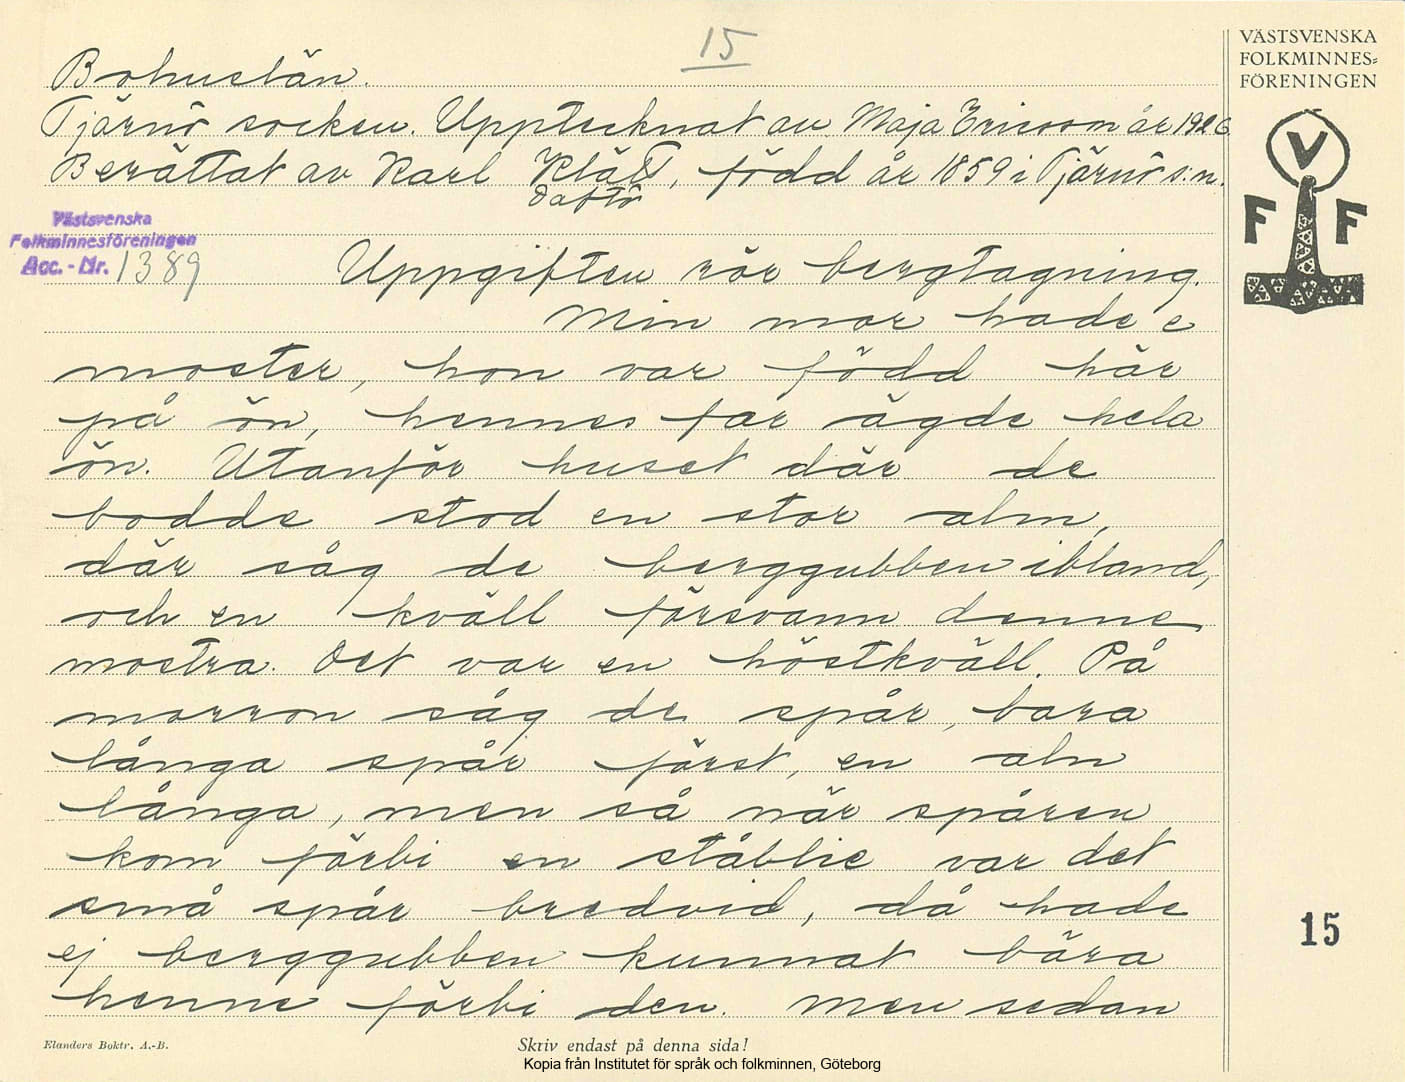 15
Bohuslän.
Tjärnö socken. Upptecknat av Maja Ericson år 1926
Berättat av Karl Klätt, född år 1859 i Tjärnö s:n.
Daftö
Västsvenska
Folkminnesföreningen
Acc. - Nr. 1389
Uppgiften rör bergtagning.
Min mor hade e
moster, hon var född här
på ön, hennes far ägde hela
ön. Utanför huset där de
bodde stod en stor alm,
där såg de berggubben ibland,
och en kväll försvann denne
mostra. Det var en höstkväll. På
morron såg de spår, bara
långa spår först, en aln
långa, men så när spåren
kom förbi en ståblie var det
små spår bredvid, då hade
ej berggubben kunnat bära
henne förbi den. Men sedan
Elanders Boktr. A.-B.
Skriv endast på denna sida!
Kopia från Institutet för språk och folkminnen, Göteborg
VÄSTSVENSKA
FOLKMINNES=
FÖRENINGEN
V
F F
15